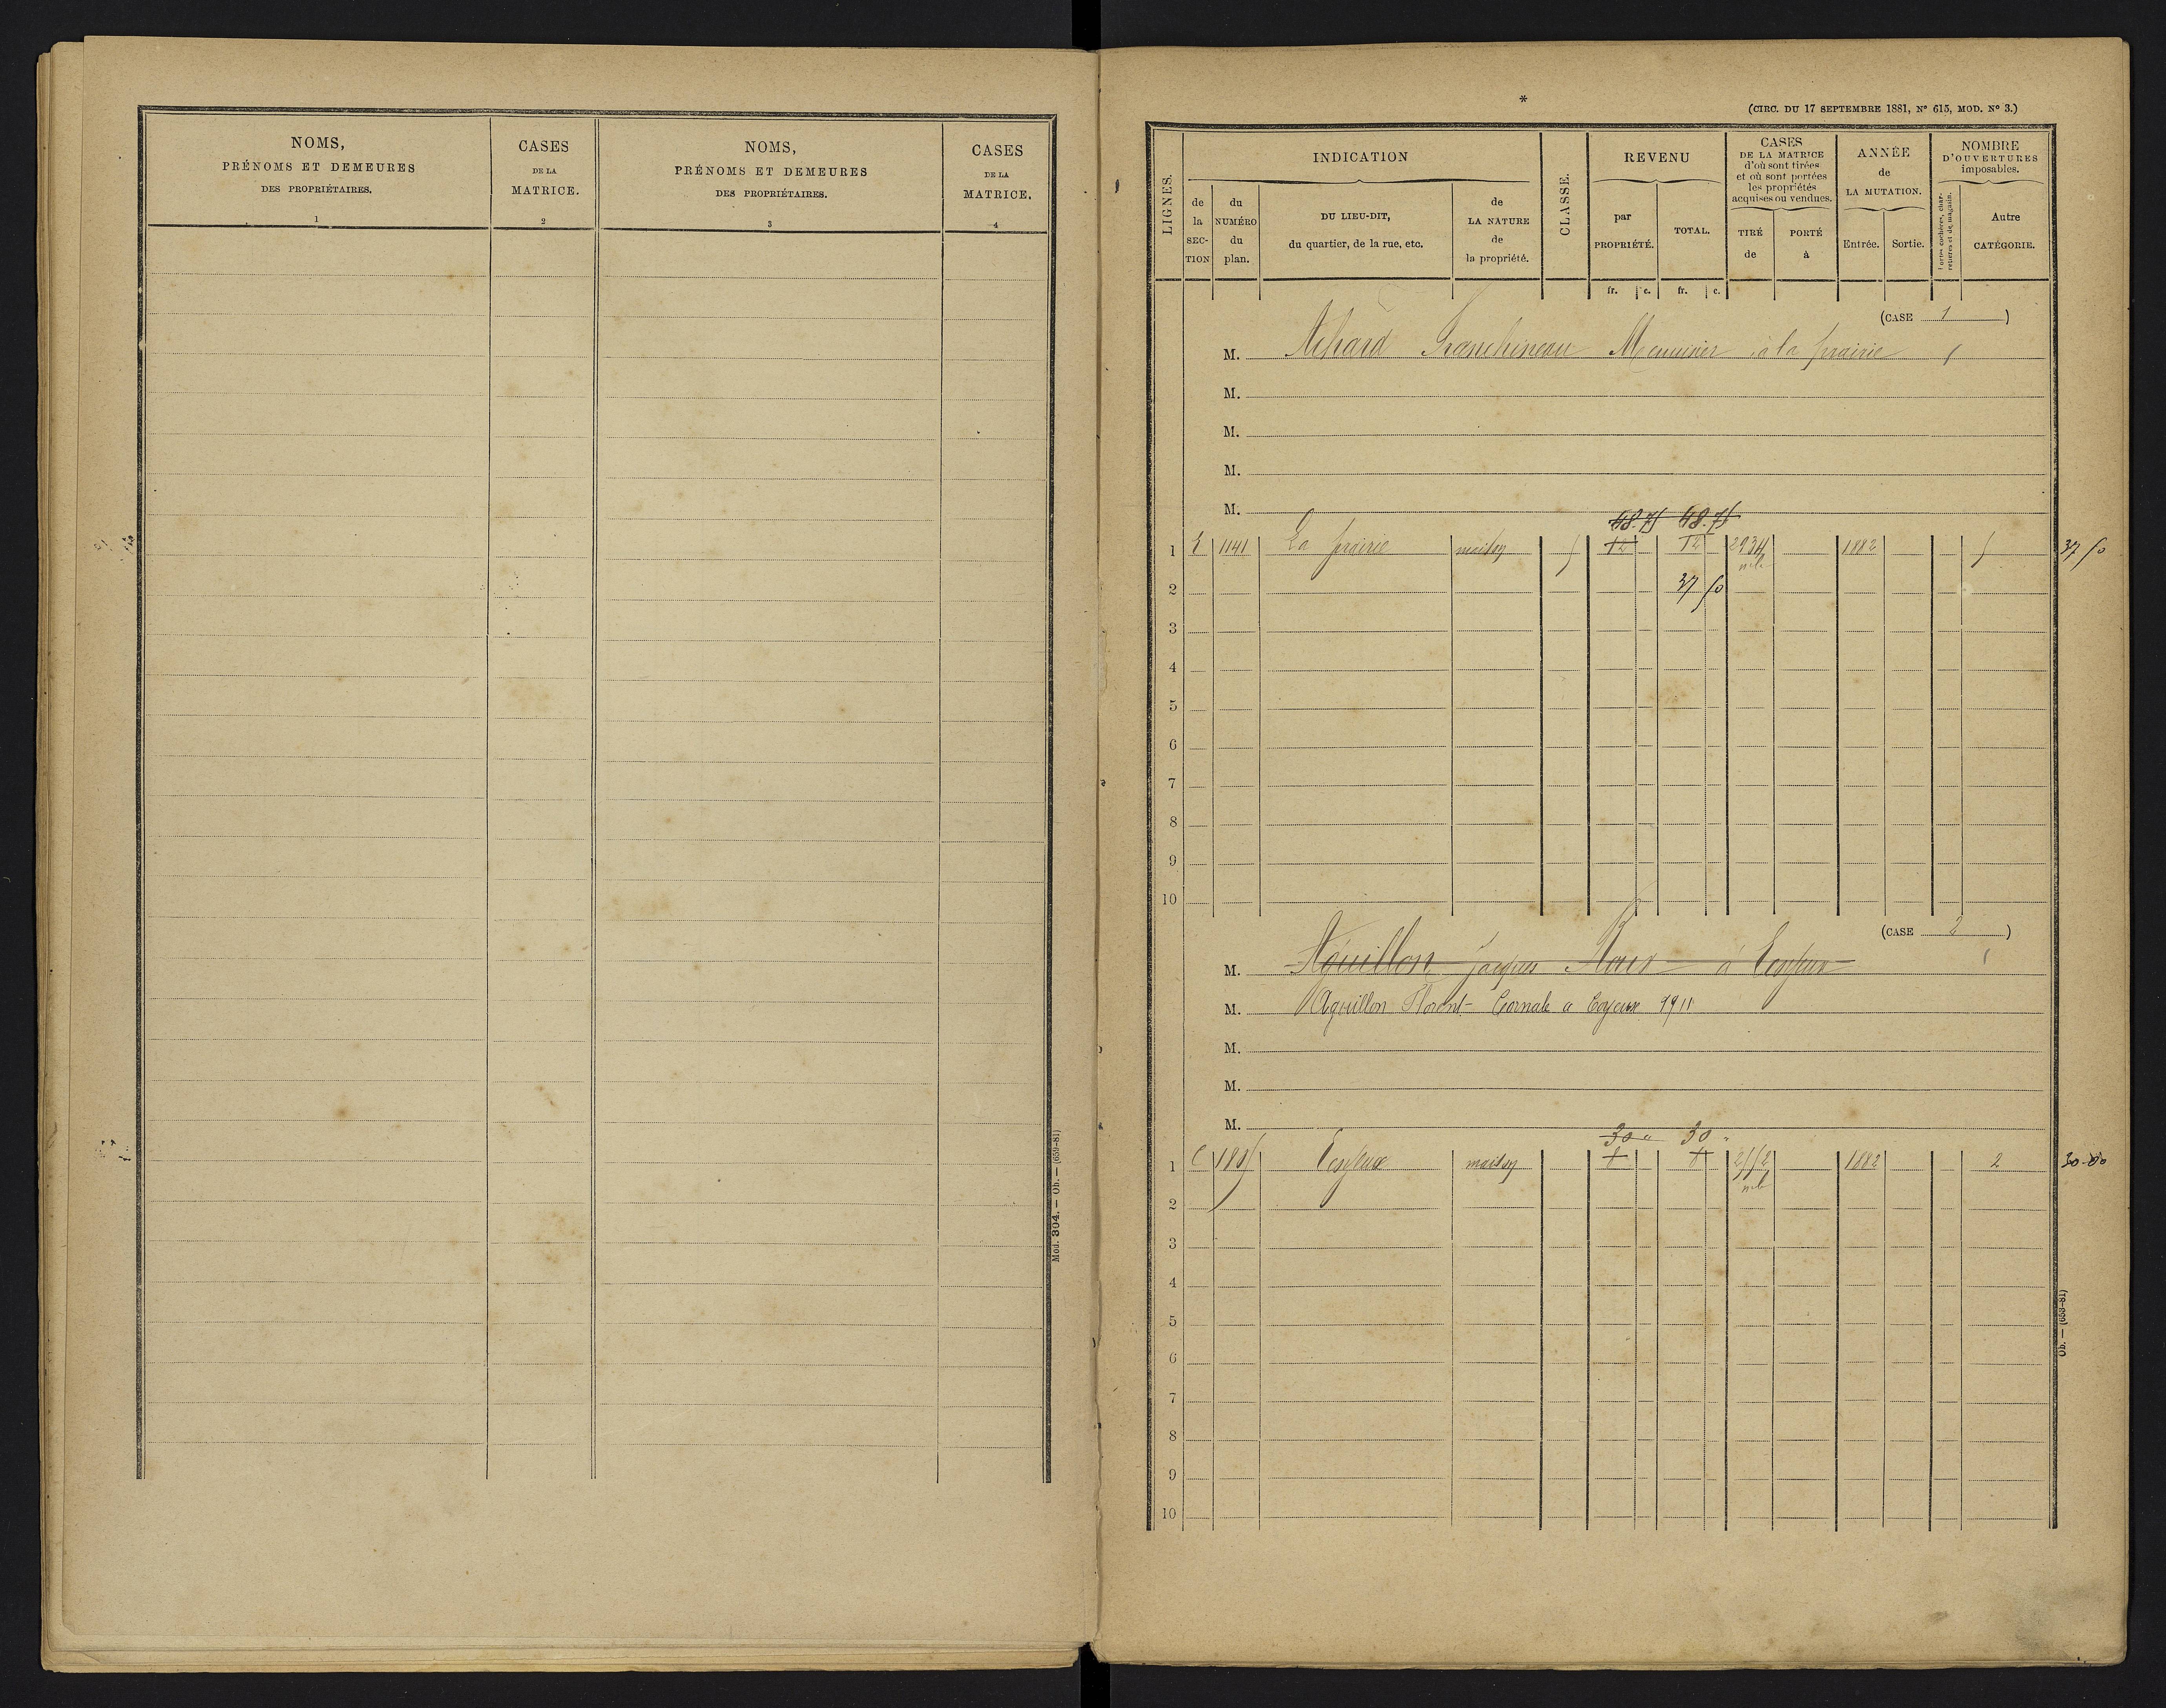 NOMS,
PRÉNOMS ET DEMEURES
DES PROPRIÉTAIRES.
1
CASES
DE LA
MATRICE.
2
NOMS,
PRÉNOMS ET DEMEURES
DES PROPRIÉTAIRES.
3
CASES
DE LA
MATRICE.
4
Mod. 304. — Ob. — (659-81)
*
(CIRC. DU 17 SEPTEMBRE 1881, N° 615, MOD. N° 3.)
LIGNES.
INDICATION
de
la
SEC-
TION
du
NUMÉRO
du
plan.
DU LIEU-DIT,
du quartier, de la rue, etc.
de
LA NATURE
de
la propriété.
CLASSE.
REVENU
par
PROPRIÉTÉ.
TOTAL.
CASES
DE LA MATRICE
d'où sont tirées
et où sont portées
les propriétés
acquises ou vendues.
TIRÉ
de
PORTÉ
à
ANNÉE
de
LA MUTATION.
Entrée. Sortie.
NOMBRE
D'OUVERTURES
imposables.
Portes cochères, char-
retières et de magasin.
Autre
CATÉGORIE.
fr. c. fr. c.
(CASE 1)
M. Achard Franchineau Menuisier à la prairie
M.
M.
M.
M.
48.75 48.75
1 1141 La prairie maison 12 12 1882 37 50
2 37 50
3
4
5
6
7
8
9
10
(CASE 2)
M. Aguillon Jacques Roux à
M. Aguillon Florent Cornale a 1911
M.
M.
M.
30 " 30 "
1 C maison 1882 2 30-00
2
3
4
5
6
7
8
9
10
Ob. — (653-81)